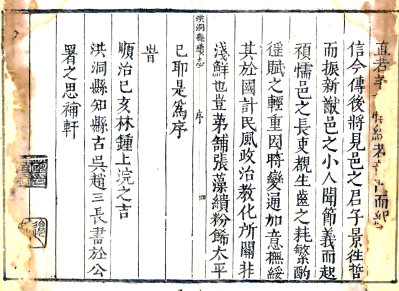 直若
信今傳後將見邑之君子景往哲
而振新猷邑之小人聞節義而起
頑懦邑之長吏覩生齒之耗繁酌
徑賦之輕重因時變通加意撫綏
其於國計民風政治教化所關非
淺鮮也豈第鋪張藻繢粉餙太平
洪洞縣續志 序
已耶是爲序
旹
順治己亥林鍾上浣之吉
洪洞縣知縣古吳趙三長書於公
署之思補軒